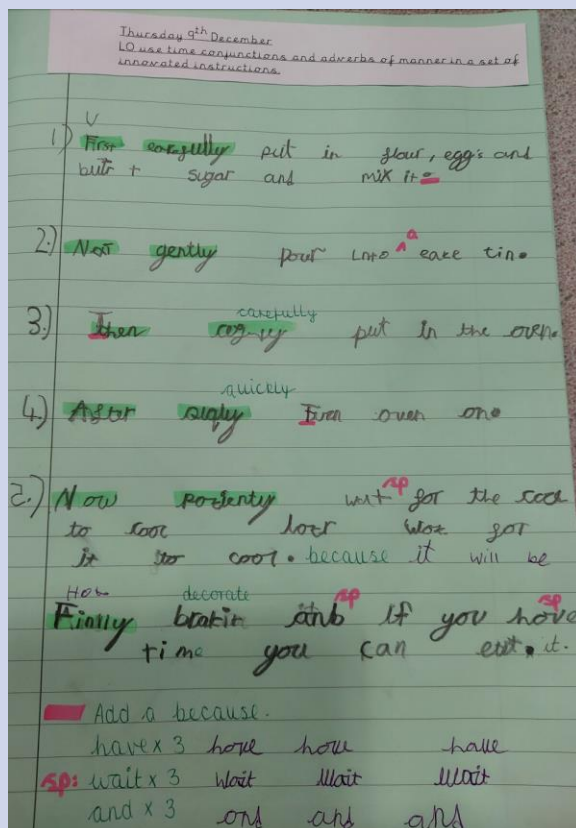 Thursday 9th December
LO use time conjunctions and adverbs of manner in a set of
innovated instructions.
1) First carefully put in flour, egg's and
butr + sugar and mix it.
2.) Next gently pour into a cake tin.
carefully
3.) Then put in the oven.
quickly
4.) After oven on.
5.) Now wait sp for the cool
to cool for
it to cool. because it will be
Hot
decorate sp sp
Finlly if you hove
time you can eat. it.
Add a because.
have x 3 hove hove have
sp: wait x 3 Wait Wait Wait
and x 3 and and and